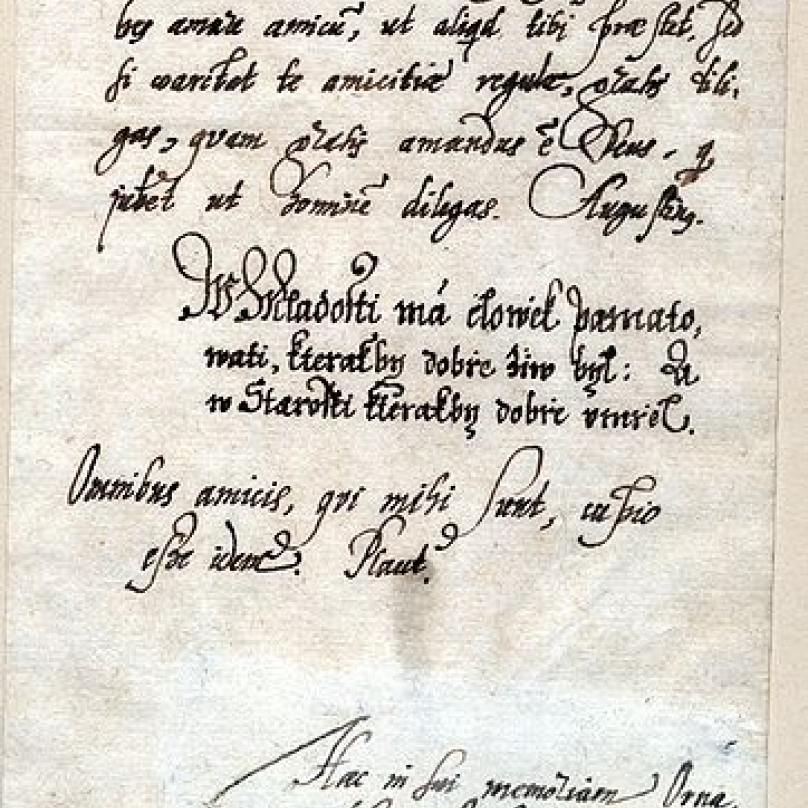 bes amare amicū, ut aliqd tibi præstet. Sed
si cantet te amicitiæ regula, gratis dili,
gas, quam gratis amandus ē Deus, q
jubēt ut hominē diligas. Augustinq.
W Mladosti má cžlowěk pamato,
wati, kterakby dobře žiw byl: A
w Starosti kterakby dobře vmřel.
Omnibus amicis, qvi mihi sunt, cupio
esse idem. Plaut.
Hæc in sui memoriam Orna